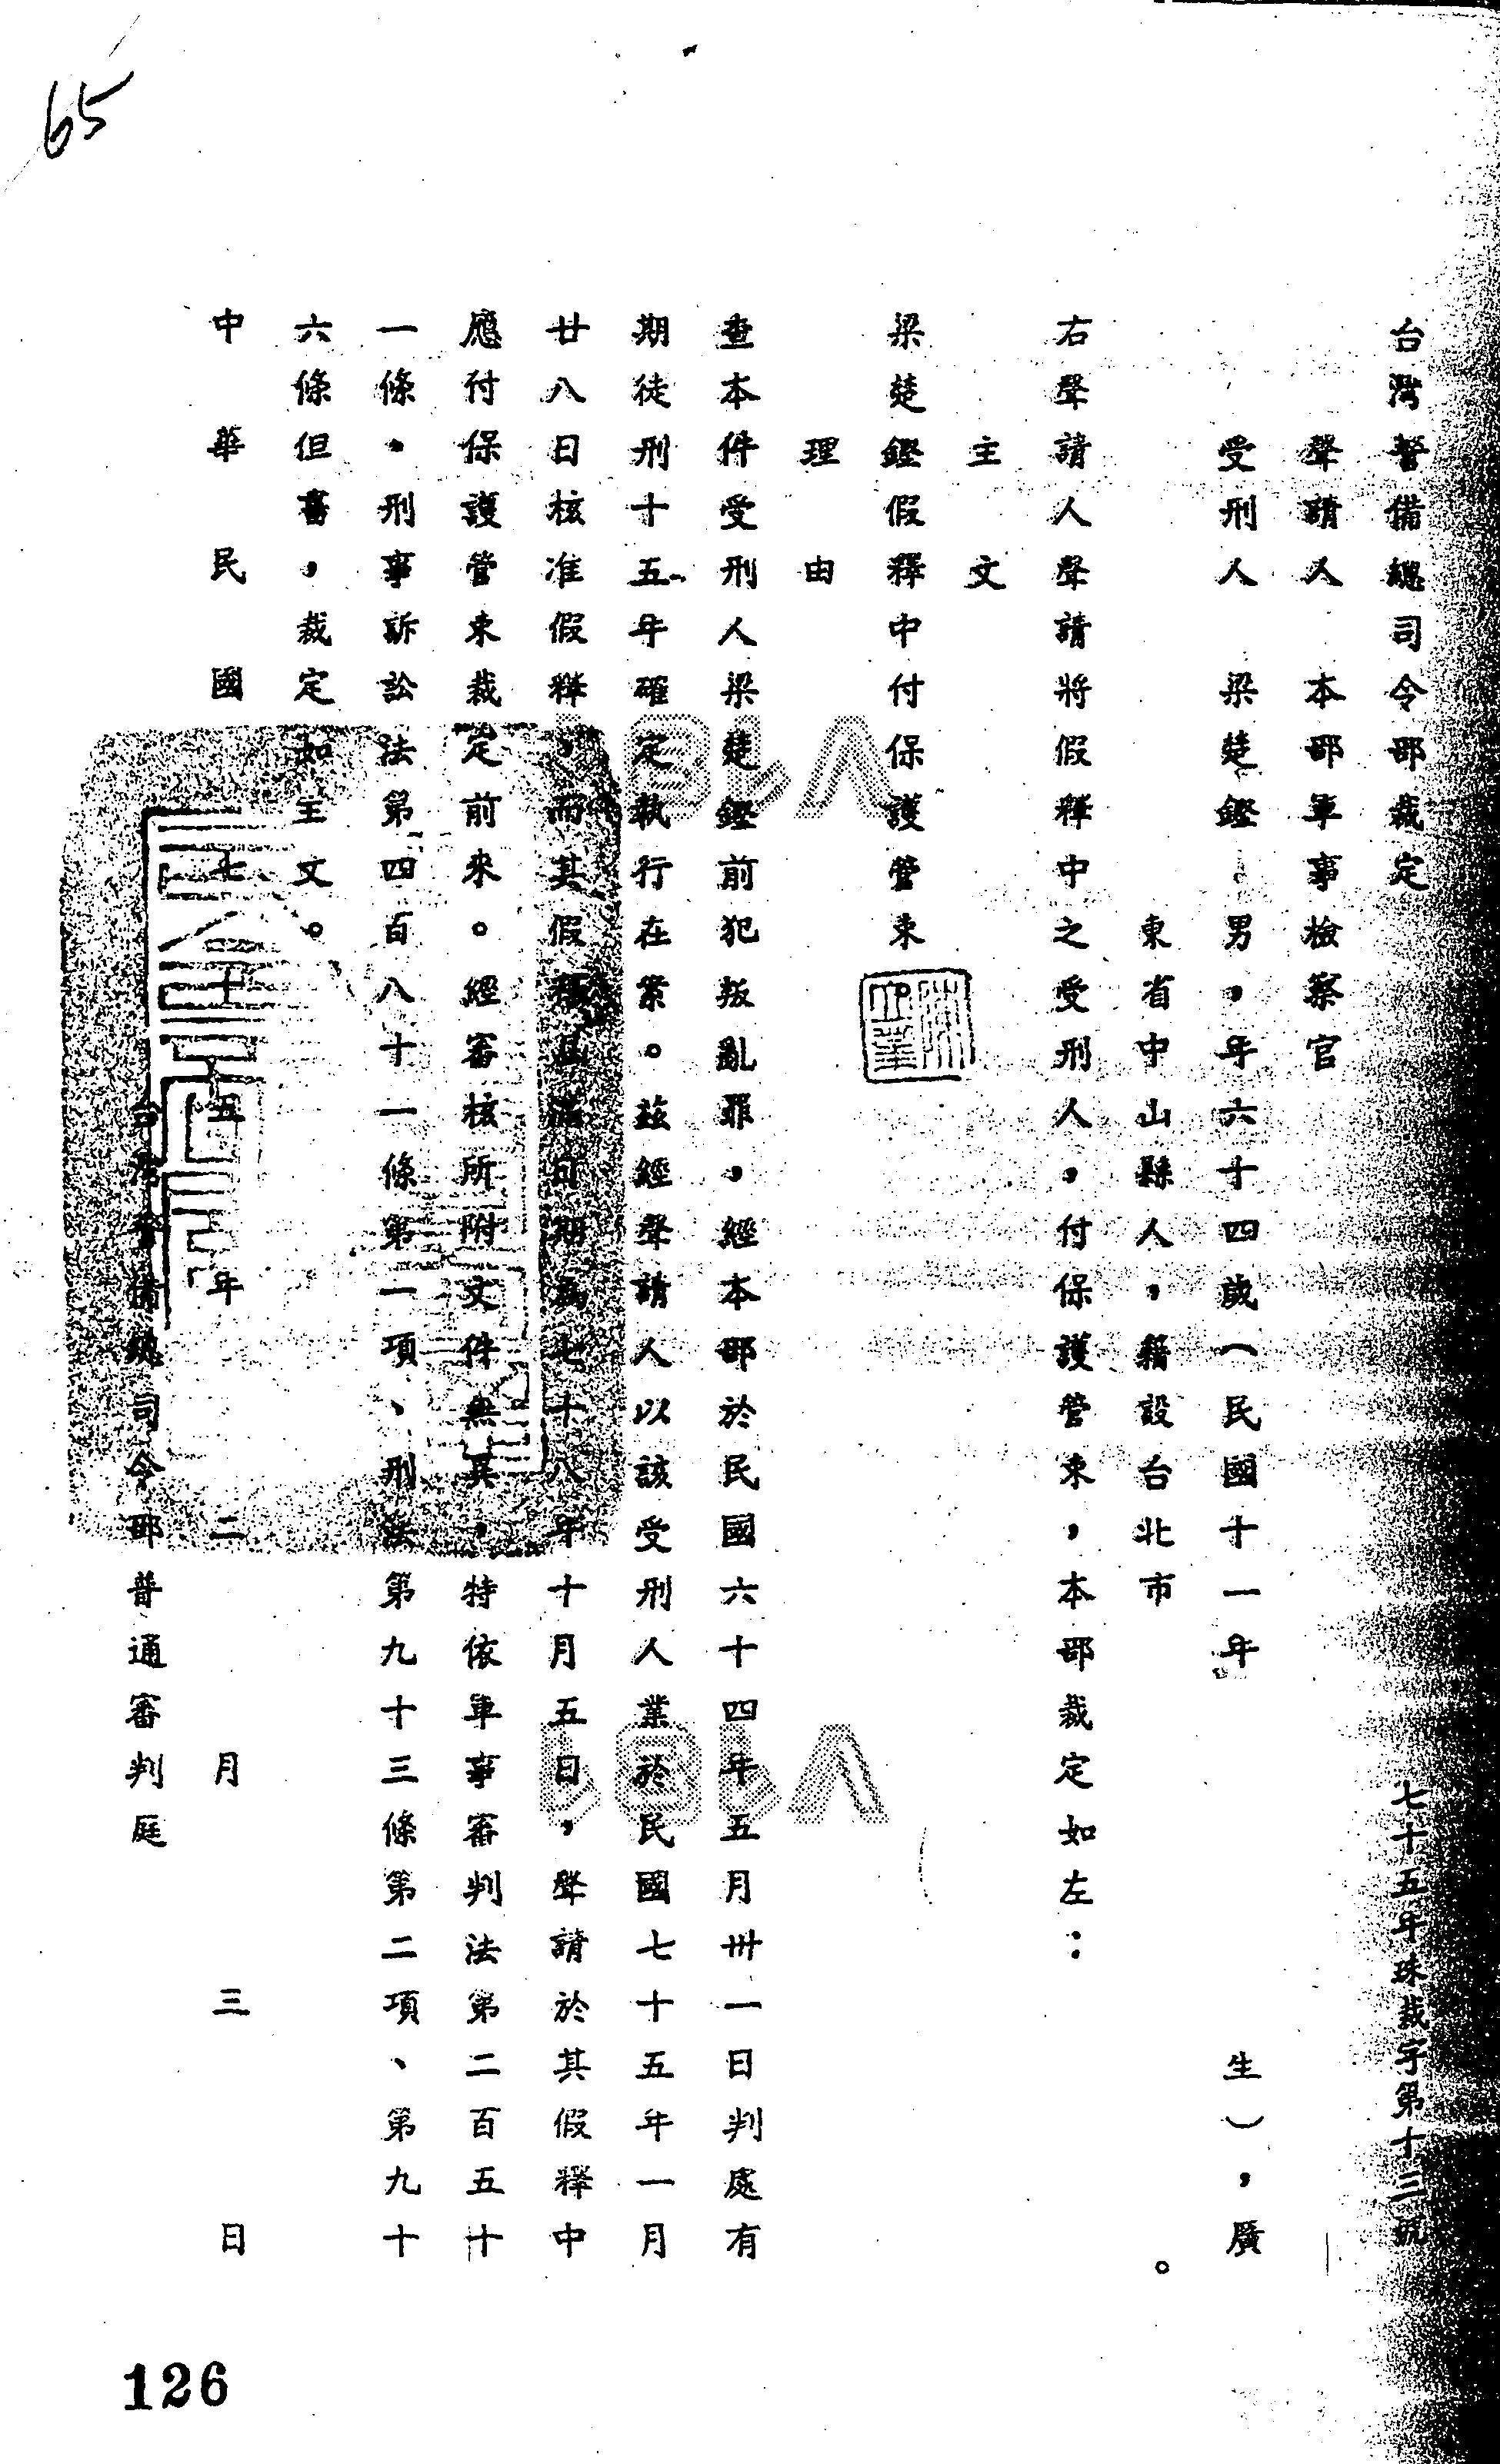 65
台灣警備總司令部裁定 七十五年珠裁字第十三號
聲請人 本部軍事檢察官
受刑人 梁楚鏗 男，年六十四歲（民國十一年 生），廣
東省中山縣人，籍設台北市 。
右聲請人聲請將假釋中之受刑人，付保護管束，本部裁定如左：
主文
梁楚鏗假釋中付保護管束
理由
查本件受刑人梁楚鏗前犯叛亂罪，經本部於民國六十四年五月卅一日判處有
期徒刑十五年確定執行在案。茲經聲請人以該受刑人業於民國七十五年一月
廿八日核准假釋，而其假釋期滿日期為七十八年十月五日，聲請於其假釋中
應付保護管束裁定前來。經審核所附文件無異，特依軍事審判法第二百五十
一條，刑事訴訟法第四百八十一條第一項、刑法第九十三條第二項、第九十
六條但書，裁定如主文。
中華民國七十五年二月三日
台灣警備總司令部普通審判庭
126